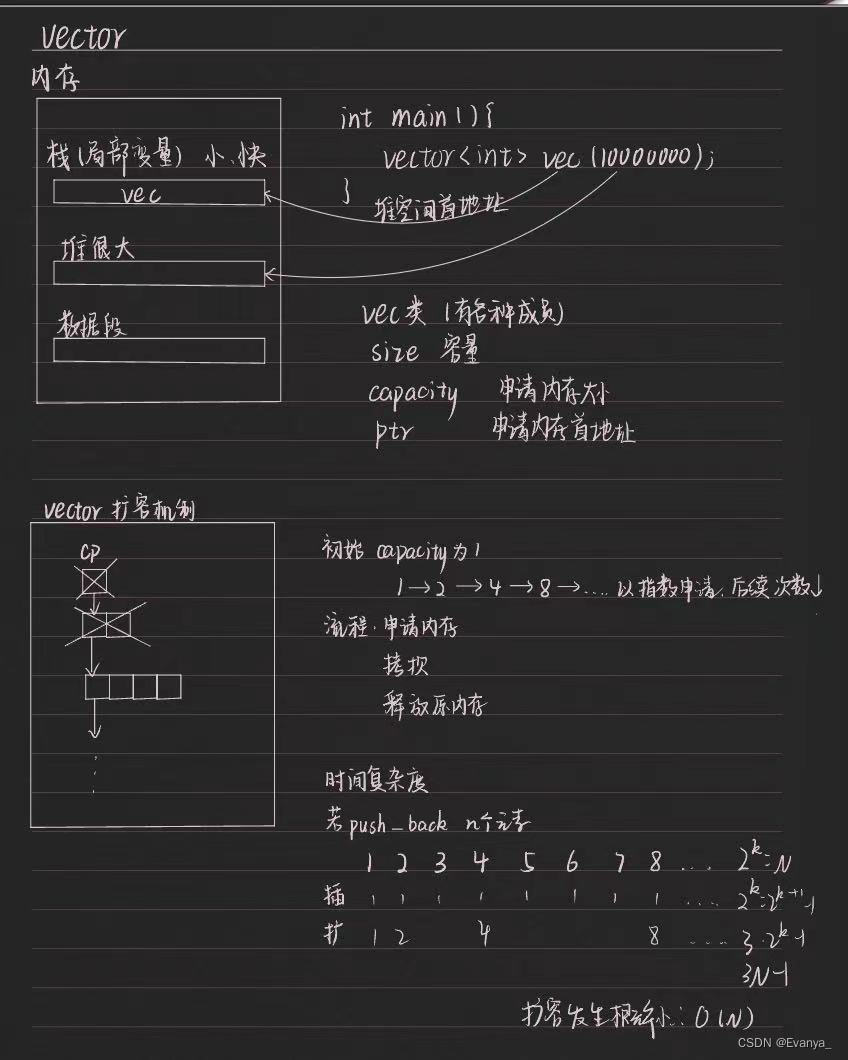 vector
内存
int main(){
栈(局部变量) 小、快
vector<int> vec (10000000);
vec
}
堆空间首地址
堆很大
数据段
vec类 (有各种成员)
size 容量
capacity 申请内存大小
ptr 申请内存首地址
vector 扩容机制
cp
初始 capacity为1
1→2→4→8→.... 以指数申请.后续次数↓
流程.申请内存
拷贝
释放原内存
时间复杂度
若push_back n个元素
1 2 3 4 5 6 7 8 ... 2^k=N
插 1 1 1 1 1 1 1 1 .... 2^k=2^k+1-1
扩 1 2 4 8 ..... 3·2^k-1
3N-1
扩容发生概率小: O(N)
CSDN @Evanya_